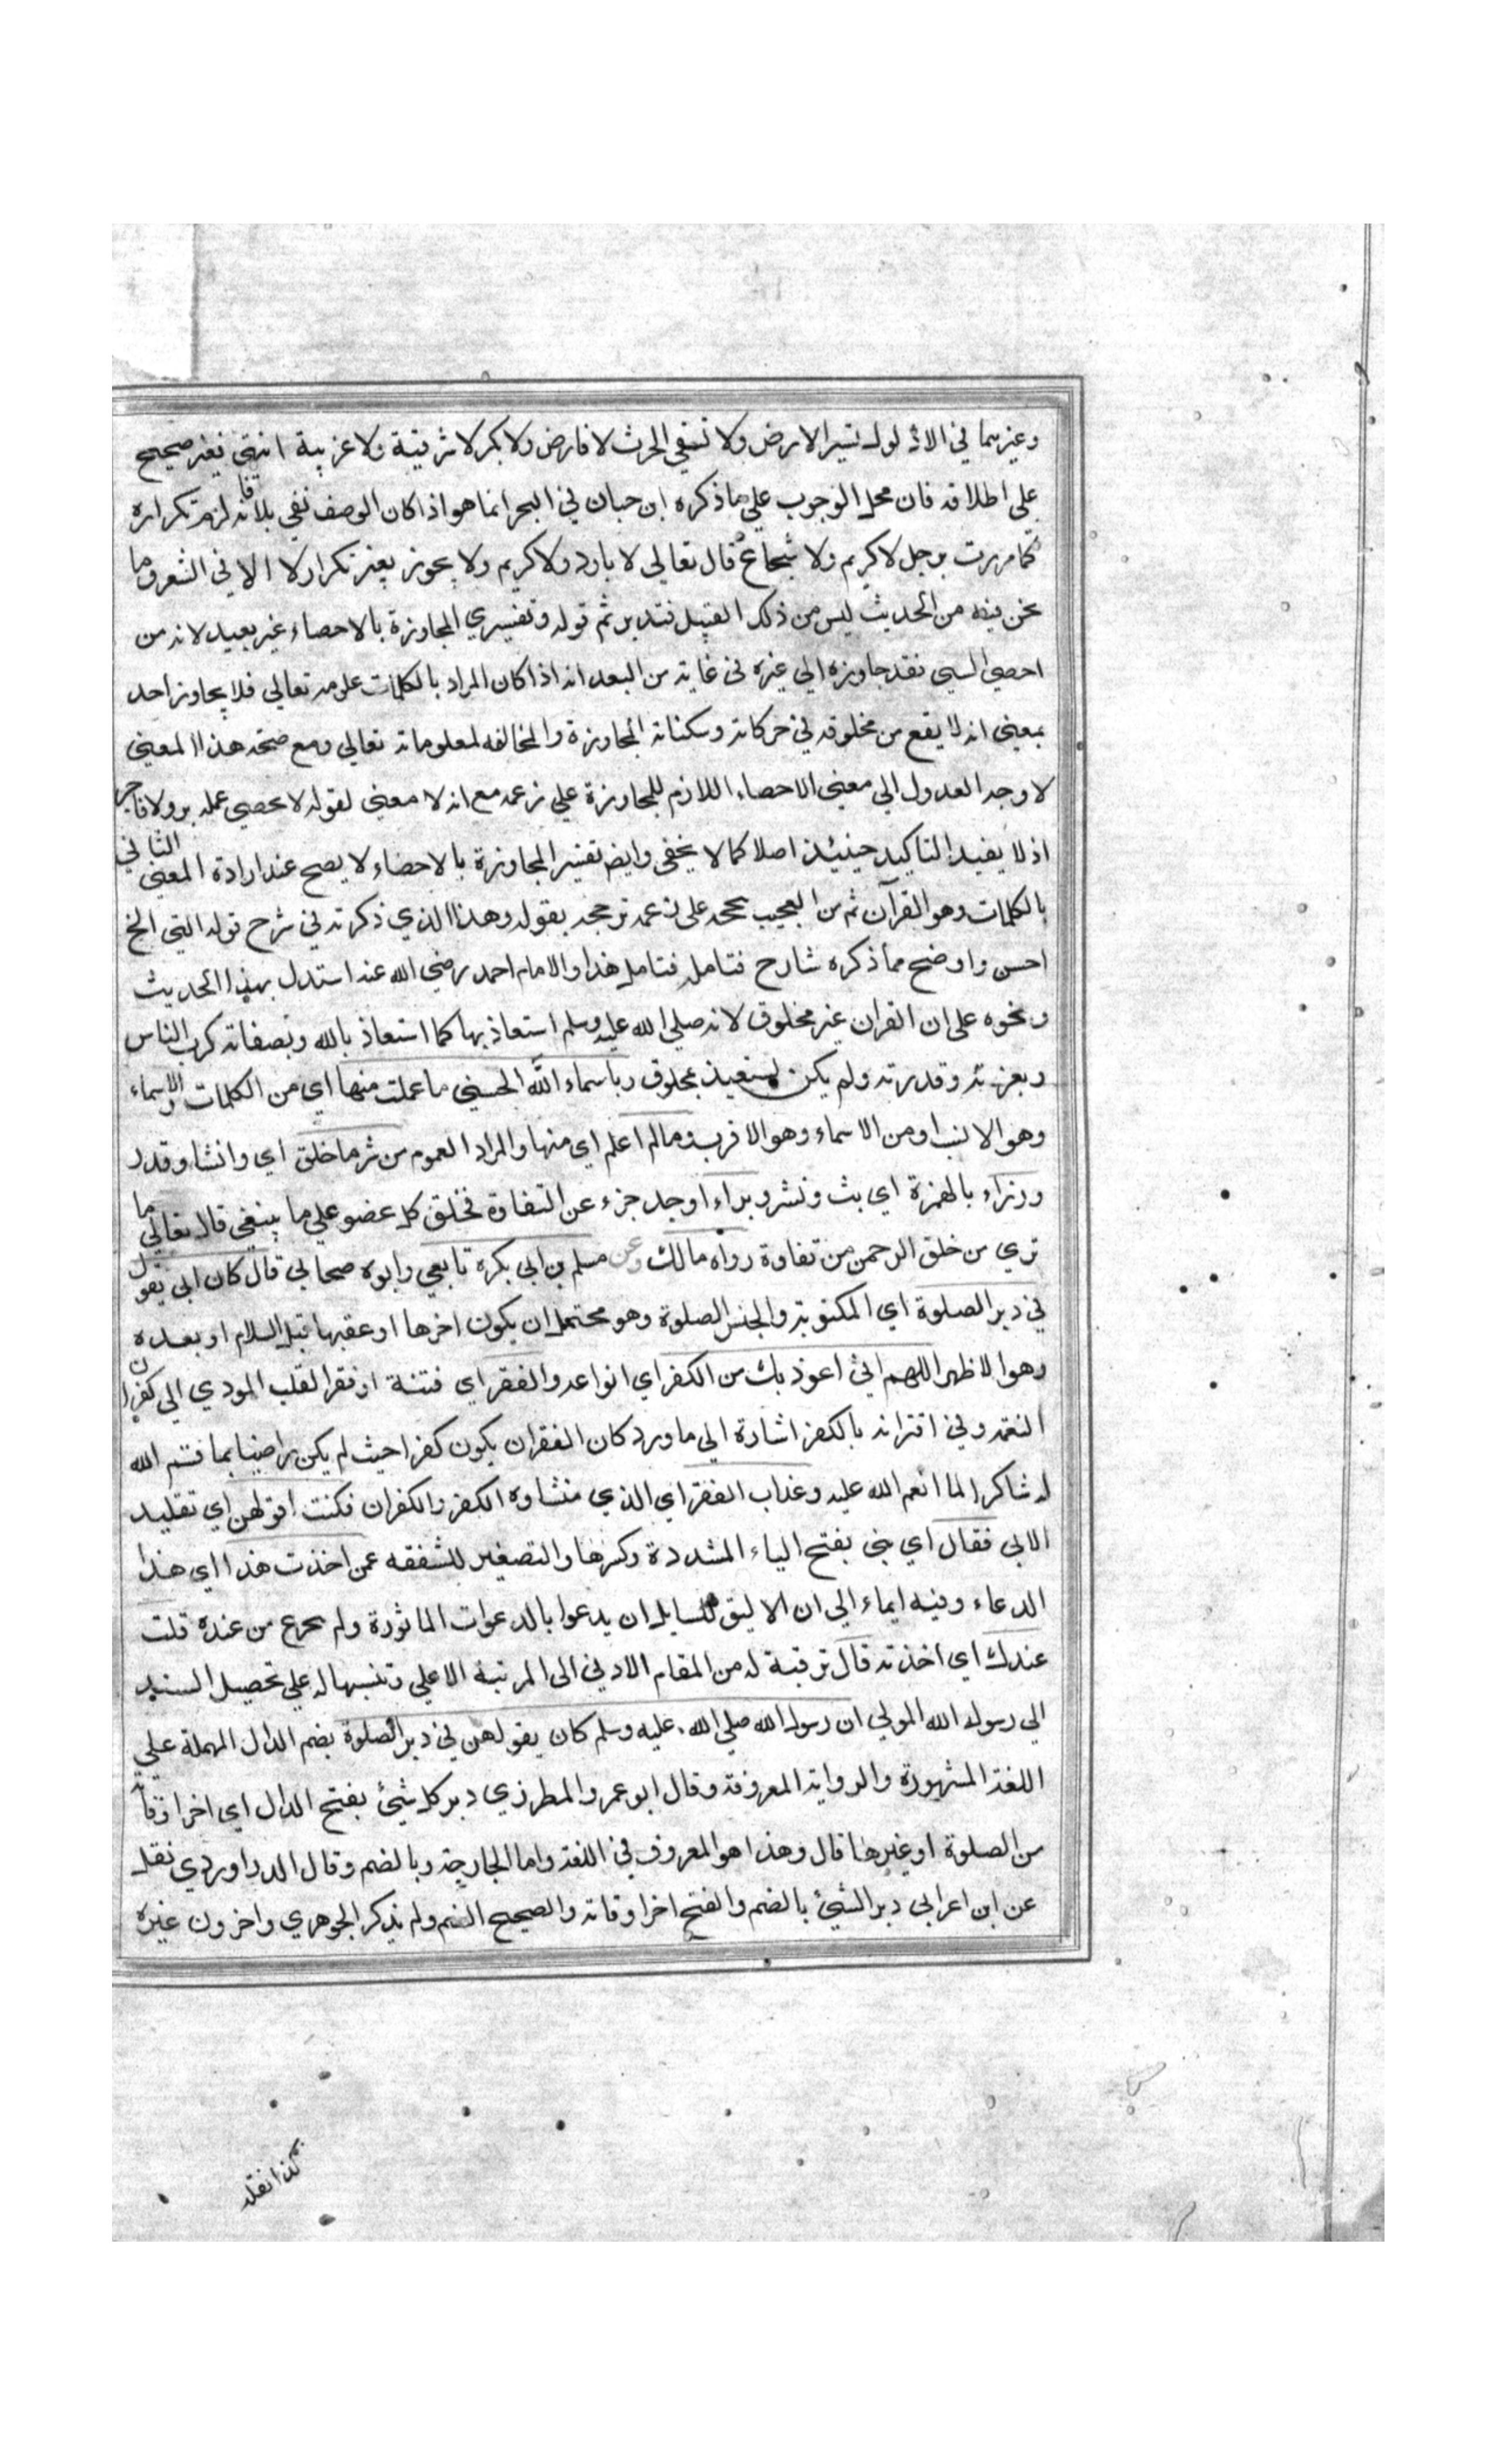 وغيرهما في لا ذلول تثير الارض ولا تسقي الحرث لا فارض ولا بكر لا شرقية ولا غربية انتهى فغير صحيح
على اطلاقه فان محل الوجوب على ما ذكره ابن حبان في البحر انما هو اذا كان الوصف نفي بلا فانه لزم تكراره
كما مررت برجل لا كريم ولا شجاع قال تعالى لا بارد ولا كريم ولا يجوز بغير تكرار لا الا في الشعر وما
نحن فيه من الحديث ليس من ذلك القبيل فتدبر ثم قوله وتفسيري المجاوزة بالاحصاء غير بعيد لانه من
احصى الشيئ فقد جاوزه الى غيره في غاية من البعد انه اذا كان المراد بالكلمات علومه تعالى فلا يجاوز احد
بمعنى انه لا يقع من مخلوقه في حركاته وسكناته المجاوزة والمخالفه لمعلوماته تعالى ومع صحة هذا المعنى
لا وجه العدول الى معنى الاحصاء اللازم للمجاوزة على زعمه مع انه لا معنى لقوله لا يحصي عمله بر ولا فاجر
اذ لا يفيد التاكيد حينئذ اصلا كما لا يخفى وايضا تفسير المجاوزة بالاحصاء لا يصح عند ارادة المعنى الثاني
بالكلمات وهو القرآن ثم من العجيب على زعمه ترجحه بقوله وهذا الذي ذكرته في شرح قوله التي الخ
احسن واوضح مما ذكره شارح فتامله فتامل هذا والامام احمد رضي الله عنه استدل بهذا الحديث
ونحوه على ان القران غير مخلوق لانه صلى الله عليه وسلم استعاذ بها كما استعاذ بالله وبصفاته كرب الناس
وبعزته وقدرته ولم يكن يستعيذ بمخلوق وباسماء الله الحسنى ما عملت منها اي من الكلمات والاسماء
وهو الانسب او من الاسماء وهو الاقرب وما لم اعلم اي منها والمراد العموم من شر ما خلق اي وانشا وقدر
وذراء بالهمزة اي بث ونشر وبراء اوجد جزء عن التفاوة فخلق كل عضو على ما ينبغي قال تعالى ما
تري من خلق الرحمن من تفاوة رواه مالك وعن مسلم بن ابي بكرة تابعي وابوه صحابي قال كان ابي يقول
في دبر الصلوة اي المكتوبة والجنس الصلوة وهو محتمل ان يكون اخرها او عقبها قبل السلام او بعده
وهو الاظهر اللهم اني اعوذ بك من الكفر اي انواعه والفقر اي فتنة او فقر القلب المودي الى كفران
النعمه وفي اقترانه بالكفر اشارة الى ما ورد كان الفقر ان يكون كفرا حيث لم يكن راضيا بما قسم الله
له شاكرا لما انعم الله عليه وعذاب الفقر اي الذي منشاوه الكفر والكفران فكنت اقولهن اي تقليد
الابي فقال اي بني بفتح الياء المشددة وكسرها والتصغير للشفقه عمن اخذت هذا اي هذا
الدعاء وفيه ايماء الى ان الاليق للسايل ان يدعوا بالدعوات الماثورة ولم يخرع من عنده قلت
عندك اي اخذته قال ترقية له من المقام الادنى الى المرتبة الاعلى وتنبيها له على تحصيل السند
الى رسول الله المولى ان رسول الله صلى الله عليه وسلم كان يقولهن في دبر الصلوة بضم الدال المهملة على
اللغة المشهورة والرواية المعروفة وقال ابو عمرو المطرزي دبر كل شيئ بفتح الدال اي اخر اوقاته
من الصلوة او غيرها قال وهذا هو المعروف في اللغة واما الجارحة وبالضم وقال الدراوردي نقلا
عن ابن اعرابي دبر الشيئ بالضم والفتح اخر اوقاته والصحيح الضم ولم يذكر الجوهري واخرون غيره
كذا نقله